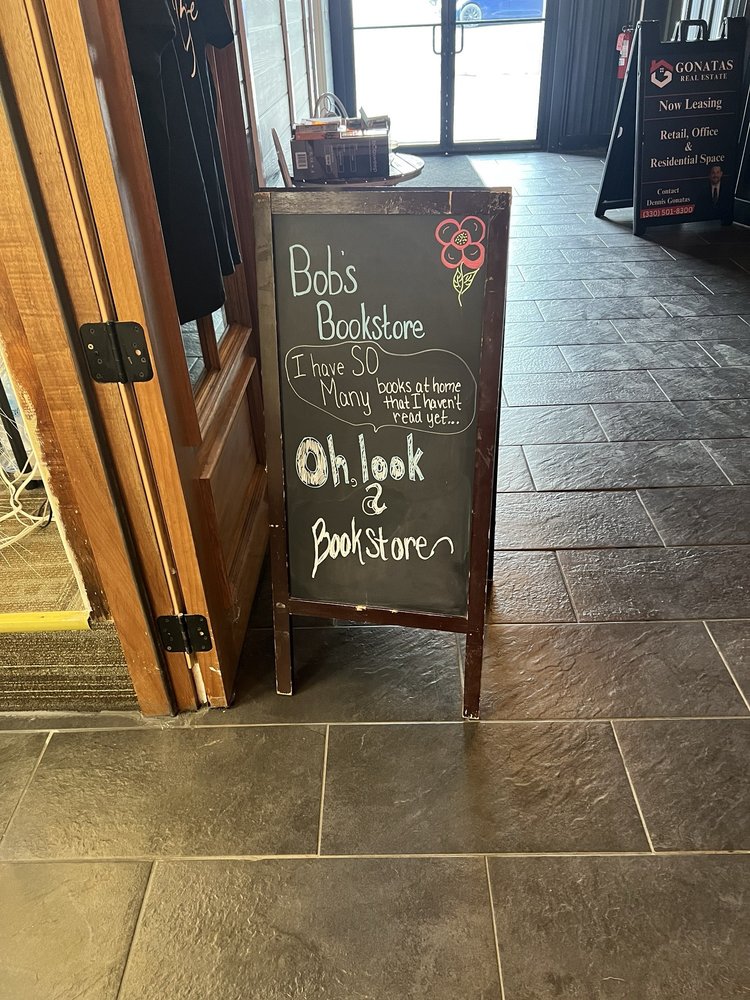 Bob's
Bookstore
I have SO
Many books at home
that I haven't
read yet...
Oh, look
a
Bookstore
GONATAS
REAL ESTATE
Now Leasing
Retail, Office &
Residential Space
Contact
Dennis Gonatas
(330) 501-8300